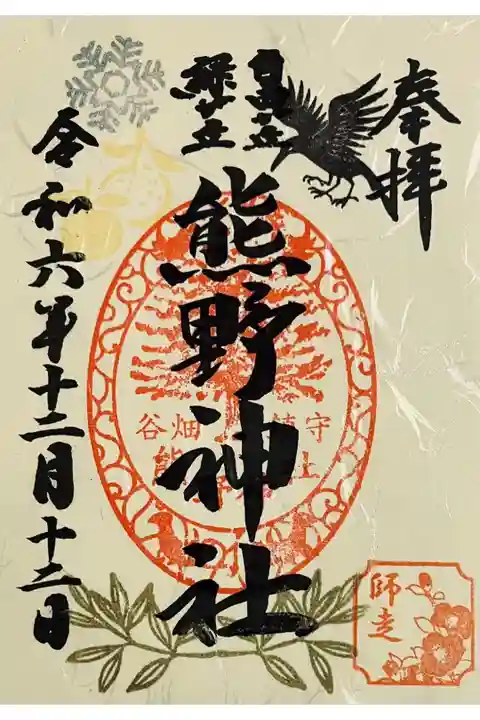 奉拝
熊野神社
令和六年十二月十二日
谷畑
鎮守
師走